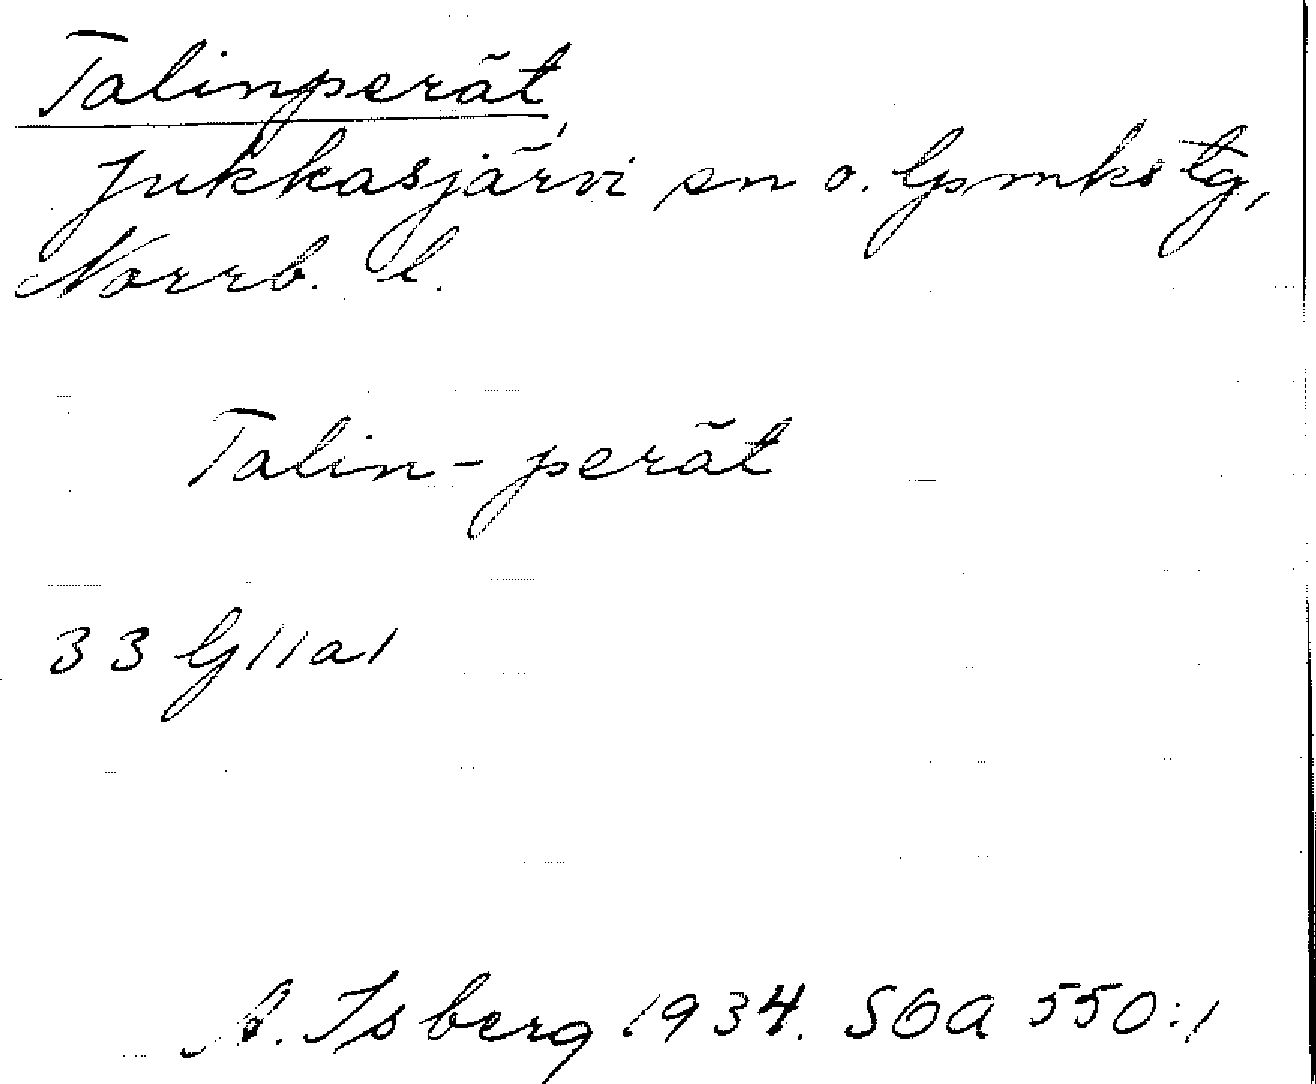 Talinperät,
Jukkasjärvi sn o. lpmkstg,
Norrb. l.
Talin-perät
33 G 11 a 1
A. Isberg 1934. SOA 550:1